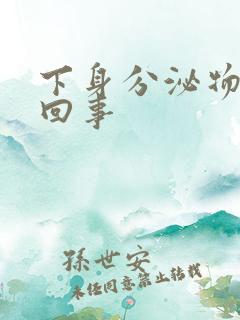 下身分泌物
回事
孫世安
未经同意禁止转载